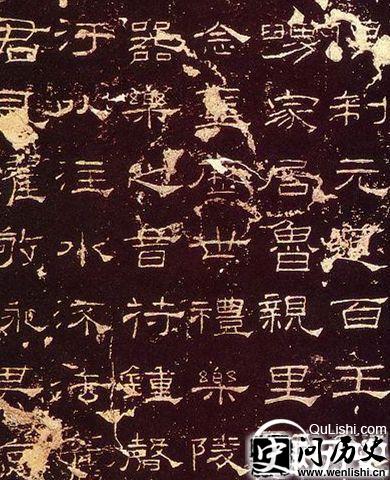 俾制元道百王
舅家居魯親里
念聖歷世禮樂陵
器樂之音符鍾磬
汙以注水流法舊
君風燿敬咏其
QuLishi.com
问历史
www.wenlishi.cn